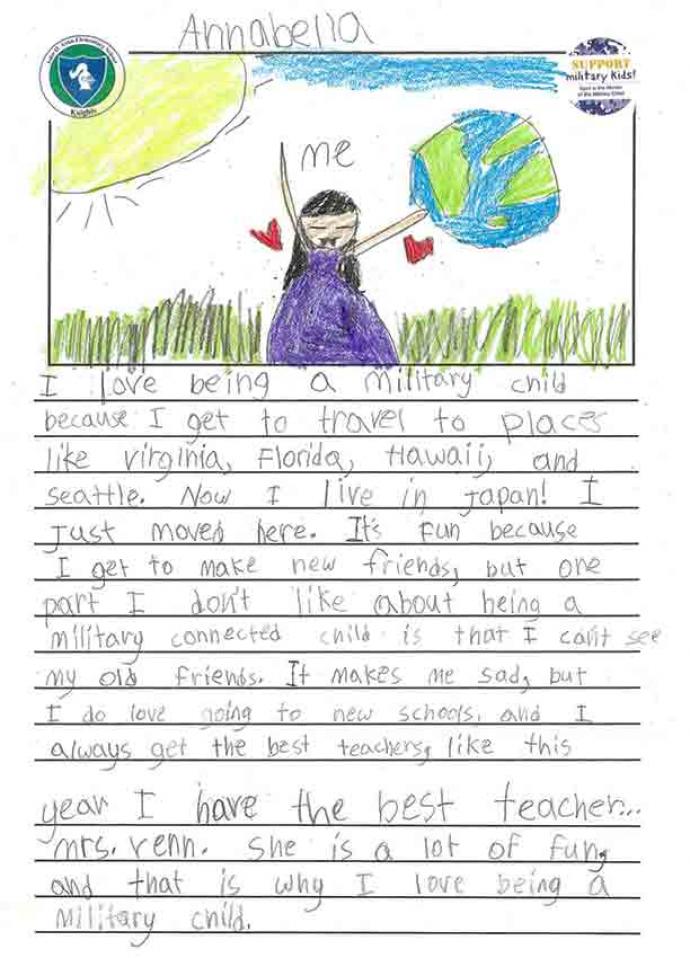 Annabella
Knights
SUPPORT
military kids!
April is the Month
of the Military Child
me
I love being a military child
because I get to travel to places
like virginia, Florida, Hawaii, and
seattle. Now I live in Japan! I
Just moved here. It's fun because
I get to make new friends, but one
part I don't like about being a
military connected child is that I can't see
my old friends. It makes me sad, but
I do love going to new schools, and I
always get the best teachers, like this
year I have the best teacher...
mrs. venn. she is a lot of fun,
and that is why I love being a
military child.